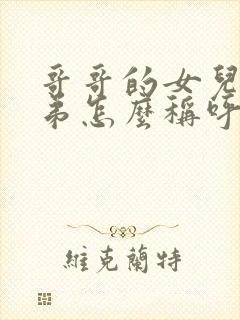 哥哥的女兒
弟怎麼稱呼
維克蘭特